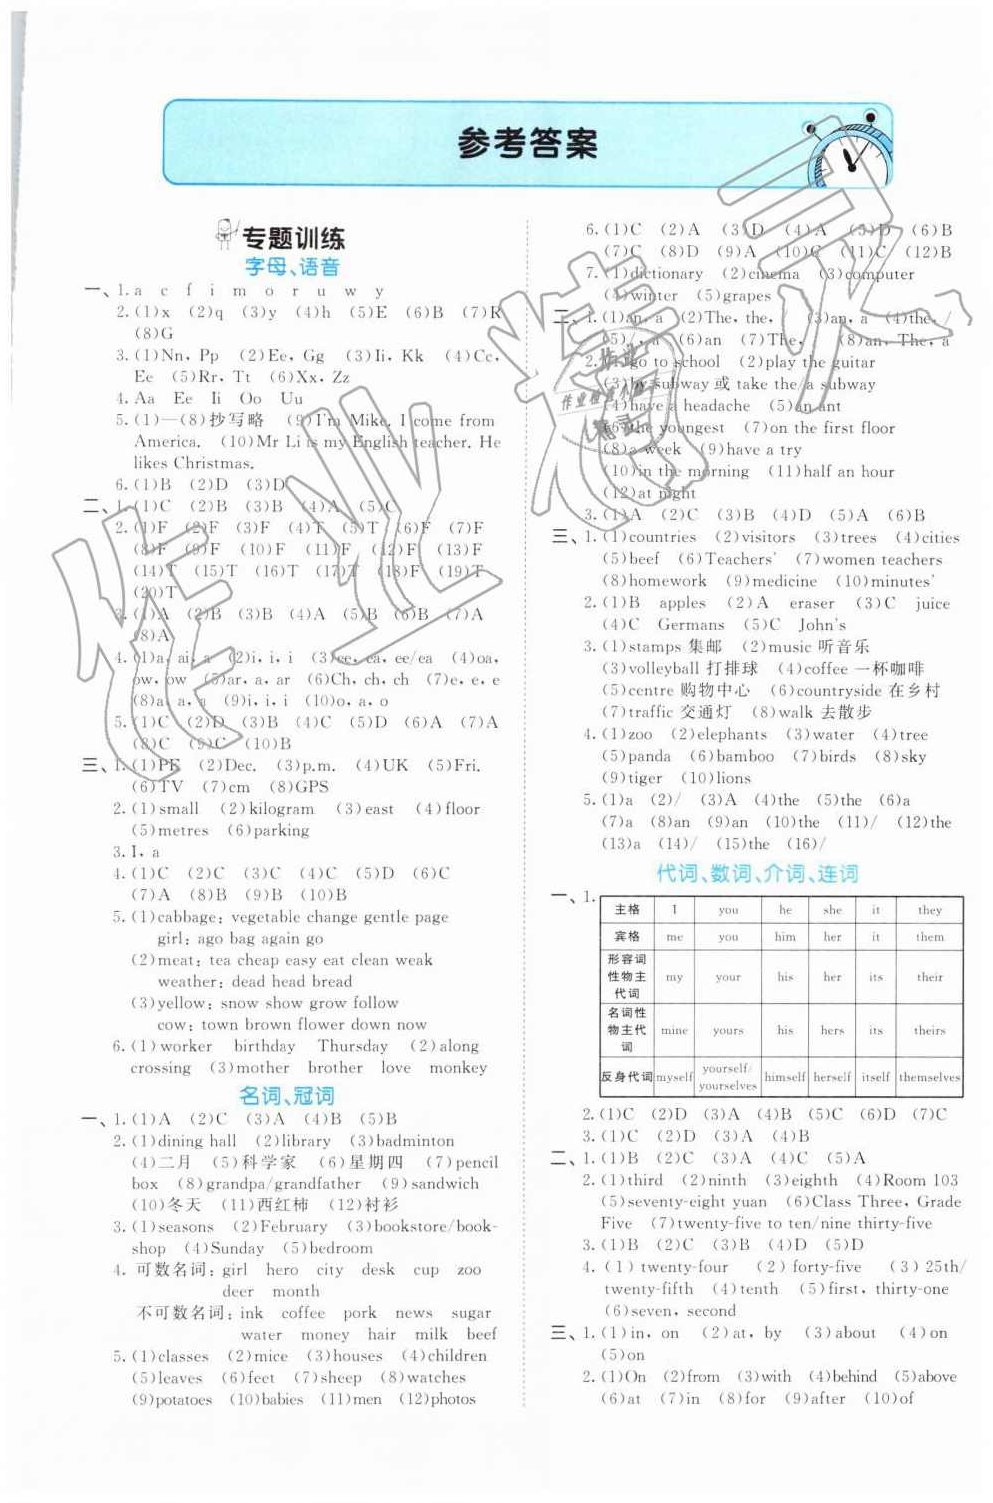 参考答案
专题训练
字母、语音
一、1. a c f i m o r u w y
2. (1)x (2)q (3)y (4)h (5)E (6)B (7)R
(8)G
3. (1)Nn, Pp (2)Ee, Gg (3)Ii, Kk (4)Cc,
Ee (5)Rr, Tt (6)Xx, Zz
4. Aa Ee Ii Oo Uu
5. (1)—(8)抄写略 (9)I'm Mike. I come from
America. (10)Mr Li is my English teacher. He
likes Christmas.
6. (1)B (2)D (3)D
二、1. (1)C (2)B (3)B (4)A (5)C
2. (1)F (2)F (3)F (4)T (5)T (6)F (7)F
(8)F (9)F (10)F (11)F (12)F (13)F
(14)T (15)T (16)T (17)T (18)F (19)T
(20)T
3. (1)A (2)B (3)B (4)A (5)B (6)B (7)A
(8)A
4. (1)a, ai, a (2)i, i, i (3)ee, ea, ee/ea (4)oa,
ow, ow (5)ar, a, ar (6)Ch, ch, ch (7)e, e, e
(8)a, a, a (9)i, i, i (10)o, a, o
5. (1)C (2)D (3)B (4)C (5)D (6)A (7)A
(8)C (9)C (10)B
三、1. (1)PE (2)Dec. (3)p.m. (4)UK (5)Fri.
(6)TV (7)cm (8)GPS
2. (1)small (2)kilogram (3)east (4)floor
(5)metres (6)parking
3. I, a
4. (1)C (2)C (3)C (4)C (5)D (6)C
(7)A (8)B (9)B (10)B
5. (1)cabbage: vegetable change gentle page
girl: ago bag again go
(2)meat: tea cheap easy eat clean weak
weather: dead head bread
(3)yellow: snow show grow follow
cow: town brown flower down now
6. (1)worker birthday Thursday (2)along
crossing (3)mother brother love monkey
名词、冠词
一、1. (1)A (2)C (3)A (4)B (5)B
2. (1)dining hall (2)library (3)badminton
(4)二月 (5)科学家 (6)星期四 (7)pencil
box (8)grandpa/grandfather (9)sandwich
(10)冬天 (11)西红柿 (12)衬衫
3. (1)seasons (2)February (3)bookstore/book-
shop (4)Sunday (5)bedroom
4. 可数名词: girl hero city desk cup zoo
deer month
不可数名词: ink coffee pork news sugar
water money hair milk beef
5. (1)classes (2)mice (3)houses (4)children
(5)leaves (6)feet (7)sheep (8)watches
(9)potatoes (10)babies (11)men (12)photos
6. (1)C (2)A (3)D (4)A (5)D (6)B
(7)C (8)D (9)A (10)C (11)C (12)B
7. (1)dictionary (2)cinema (3)computer
(4)winter (5)grapes
二、1. (1)an, a (2)The, the, / (3)an, a (4)the, /
(5)/, a (6)an (7)The, / (8)an, The, a
2. (1)go to school (2)play the guitar
(3)by subway 或 take the/a subway
(4)have a headache (5)an ant
(6)the youngest (7)on the first floor
(8)a week (9)have a try
(10)in the morning (11)half an hour
(12)at night
3. (1)A (2)C (3)B (4)D (5)A (6)B
三、1. (1)countries (2)visitors (3)trees (4)cities
(5)beef (6)Teachers' (7)women teachers
(8)homework (9)medicine (10)minutes'
2. (1)B apples (2)A eraser (3)C juice
(4)C Germans (5)C John's
3. (1)stamps 集邮 (2)music 听音乐
(3)volleyball 打排球 (4)coffee 一杯咖啡
(5)centre 购物中心 (6)countryside 在乡村
(7)traffic 交通灯 (8)walk 去散步
4. (1)zoo (2)elephants (3)water (4)tree
(5)panda (6)bamboo (7)birds (8)sky
(9)tiger (10)lions
5. (1)a (2)/ (3)A (4)the (5)the (6)a
(7)a (8)an (9)an (10)the (11)/ (12)the
(13)a (14)/ (15)the (16)/
代词、数词、介词、连词
一、1.
主格 I you he she it they
宾格 me you him her it them
形容词
性物主
代词 my your his her its their
名词性
物主代
词 mine yours his hers its theirs
反身代词 myself yourself/
yourselves himself herself itself themselves
2. (1)C (2)D (3)A (4)B (5)C (6)D (7)C
3. (1)C (2)D (3)A (4)B
二、1. (1)B (2)C (3)A (4)C (5)A
2. (1)third (2)ninth (3)eighth (4)Room 103
(5)seventy-eight yuan (6)Class Three, Grade
Five (7)twenty-five to ten/nine thirty-five
3. (1)B (2)C (3)B (4)D (5)D
4. (1) twenty-four (2) forty-five (3) 25th/
twenty-fifth (4)tenth (5)first, thirty-one
(6)seven, second
三、1. (1)in, on (2)at, by (3)about (4)on
(5)on
2. (1)On (2)from (3)with (4)behind (5)above
(6)at (7)in (8)for (9)after (10)of